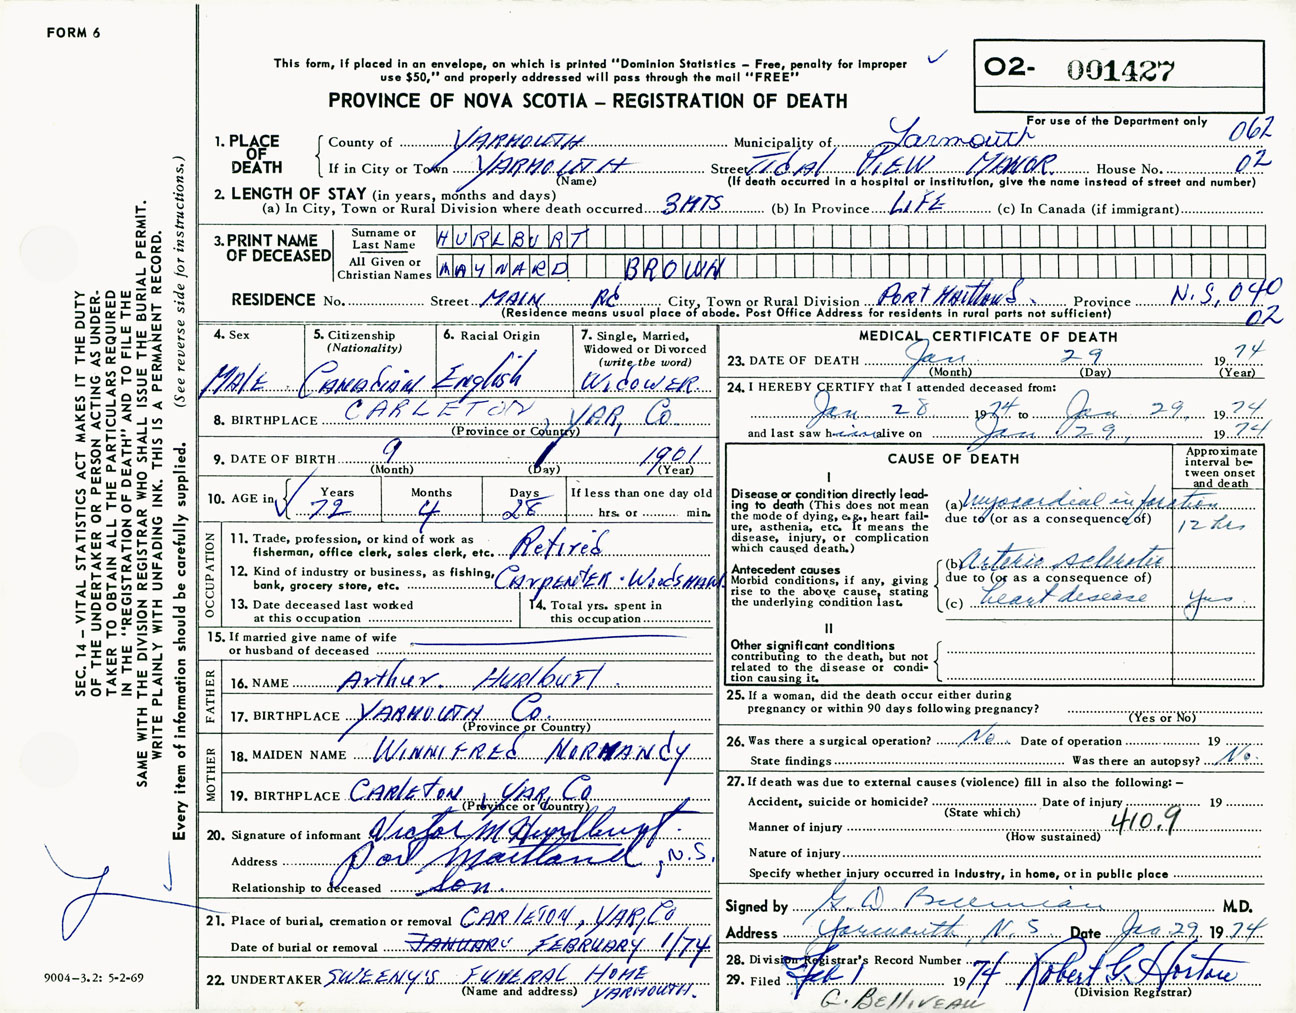 FORM 6
This form, if placed in an envelope, on which is printed "Dominion Statistics – Free, penalty for improper
use $50," and properly addressed will pass through the mail "FREE"
PROVINCE OF NOVA SCOTIA – REGISTRATION OF DEATH
02- 001427
For use of the Department only
062
02
1. PLACE OF DEATH
County of YARMOUTH Municipality of Yarmouth
If in City or Town YARMOUTH Street TIDAL VIEW MANOR House No.
(Name) (If death occurred in a hospital or institution, give the name instead of street and number)
2. LENGTH OF STAY (in years, months and days)
(a) In City, Town or Rural Division where death occurred 3 MTS (b) In Province LIFE (c) In Canada (if immigrant)
3. PRINT NAME OF DECEASED
Surname or Last Name HURLBURT
All Given or Christian Names MAYNARD BROWN
RESIDENCE No. Street MAIN RD City, Town or Rural Division PORT Maitland Province N.S. 040
02
(Residence means usual place of abode. Post Office Address for residents in rural parts not sufficient)
4. Sex
MALE
5. Citizenship
(Nationality)
Canadian
6. Racial Origin
English
7. Single, Married,
Widowed or Divorced
(write the word)
WIDOWER
8. BIRTHPLACE CARLETON, YAR, Co
(Province or Country)
9. DATE OF BIRTH 9 1 1901
(Month) (Day) (Year)
10. AGE in
Years 72
Months 4
Days 28
If less than one day old
hrs. or min.
OCCUPATION
11. Trade, profession, or kind of work as
fisherman, office clerk, sales clerk, etc. Retired
12. Kind of industry or business, as fishing,
bank, grocery store, etc. CARPENTER - WOODSMAN
13. Date deceased last worked
at this occupation
14. Total yrs. spent in
this occupation
15. If married give name of wife
or husband of deceased
FATHER
16. NAME Arthur. Hurlburt.
17. BIRTHPLACE YARMOUTH Co.
(Province or Country)
MOTHER
18. MAIDEN NAME WINNIFRED NORMANDY
19. BIRTHPLACE CARLETON, YAR, Co
(Province or Country)
20. Signature of informant Victor M Hurlburt.
Address Port Maitland, N.S.
Relationship to deceased Son.
21. Place of burial, cremation or removal CARLETON, YAR, Co
Date of burial or removal JANUARY FEBRUARY 1/74
22. UNDERTAKER SWEENY'S FUNERAL HOME
(Name and address) YARMOUTH.
MEDICAL CERTIFICATE OF DEATH
23. DATE OF DEATH Jan 29 1974
(Month) (Day) (Year)
24. I HEREBY CERTIFY that I attended deceased from:
Jan 28 1974 to Jan 29, 1974
and last saw him alive on Jan 29, 1974
CAUSE OF DEATH
Approximate
interval be-
tween onset
and death
I
Disease or condition directly lead-
ing to death (This does not mean
the mode of dying, e.g., heart fail-
ure, asthenia, etc. It means the
disease, injury, or complication
which caused death.)
(a) myocardial infarction
due to (or as a consequence of) 12 hrs
Antecedent causes
Morbid conditions, if any, giving
rise to the above cause, stating
the underlying condition last.
(b) Arterio sclerotic
due to (or as a consequence of)
(c) heart disease yrs.
II
Other significant conditions
contributing to the death, but not
related to the disease or condi-
tion causing it.
25. If a woman, did the death occur either during
pregnancy or within 90 days following pregnancy?
(Yes or No)
26. Was there a surgical operation? No. Date of operation 19
State findings Was there an autopsy? No.
27. If death was due to external causes (violence) fill in also the following: –
Accident, suicide or homicide? Date of injury 19
(State which)
Manner of injury 410.9
(How sustained)
Nature of injury
Specify whether injury occurred in industry, in home, or in public place
Signed by G. D Belliveau M.D.
Address Yarmouth, N. S Date Jan 29, 1974
28. Division Registrar's Record Number
29. Filed Feb 1 1974 Robert G. Horton
(Division Registrar)
G. BELLIVEAU
SEC. 14 – VITAL STATISTICS ACT MAKES IT THE DUTY
OF THE UNDERTAKER OR PERSON ACTING AS UNDER-
TAKER TO OBTAIN ALL THE PARTICULARS REQUIRED
IN THE "REGISTRATION OF DEATH" AND TO FILE THE
SAME WITH THE DIVISION REGISTRAR WHO SHALL ISSUE THE BURIAL PERMIT.
WRITE PLAINLY WITH UNFADING INK. THIS IS A PERMANENT RECORD.
Every item of information should be carefully supplied. (See reverse side for instructions.)
9004–3.2: 5-2-69